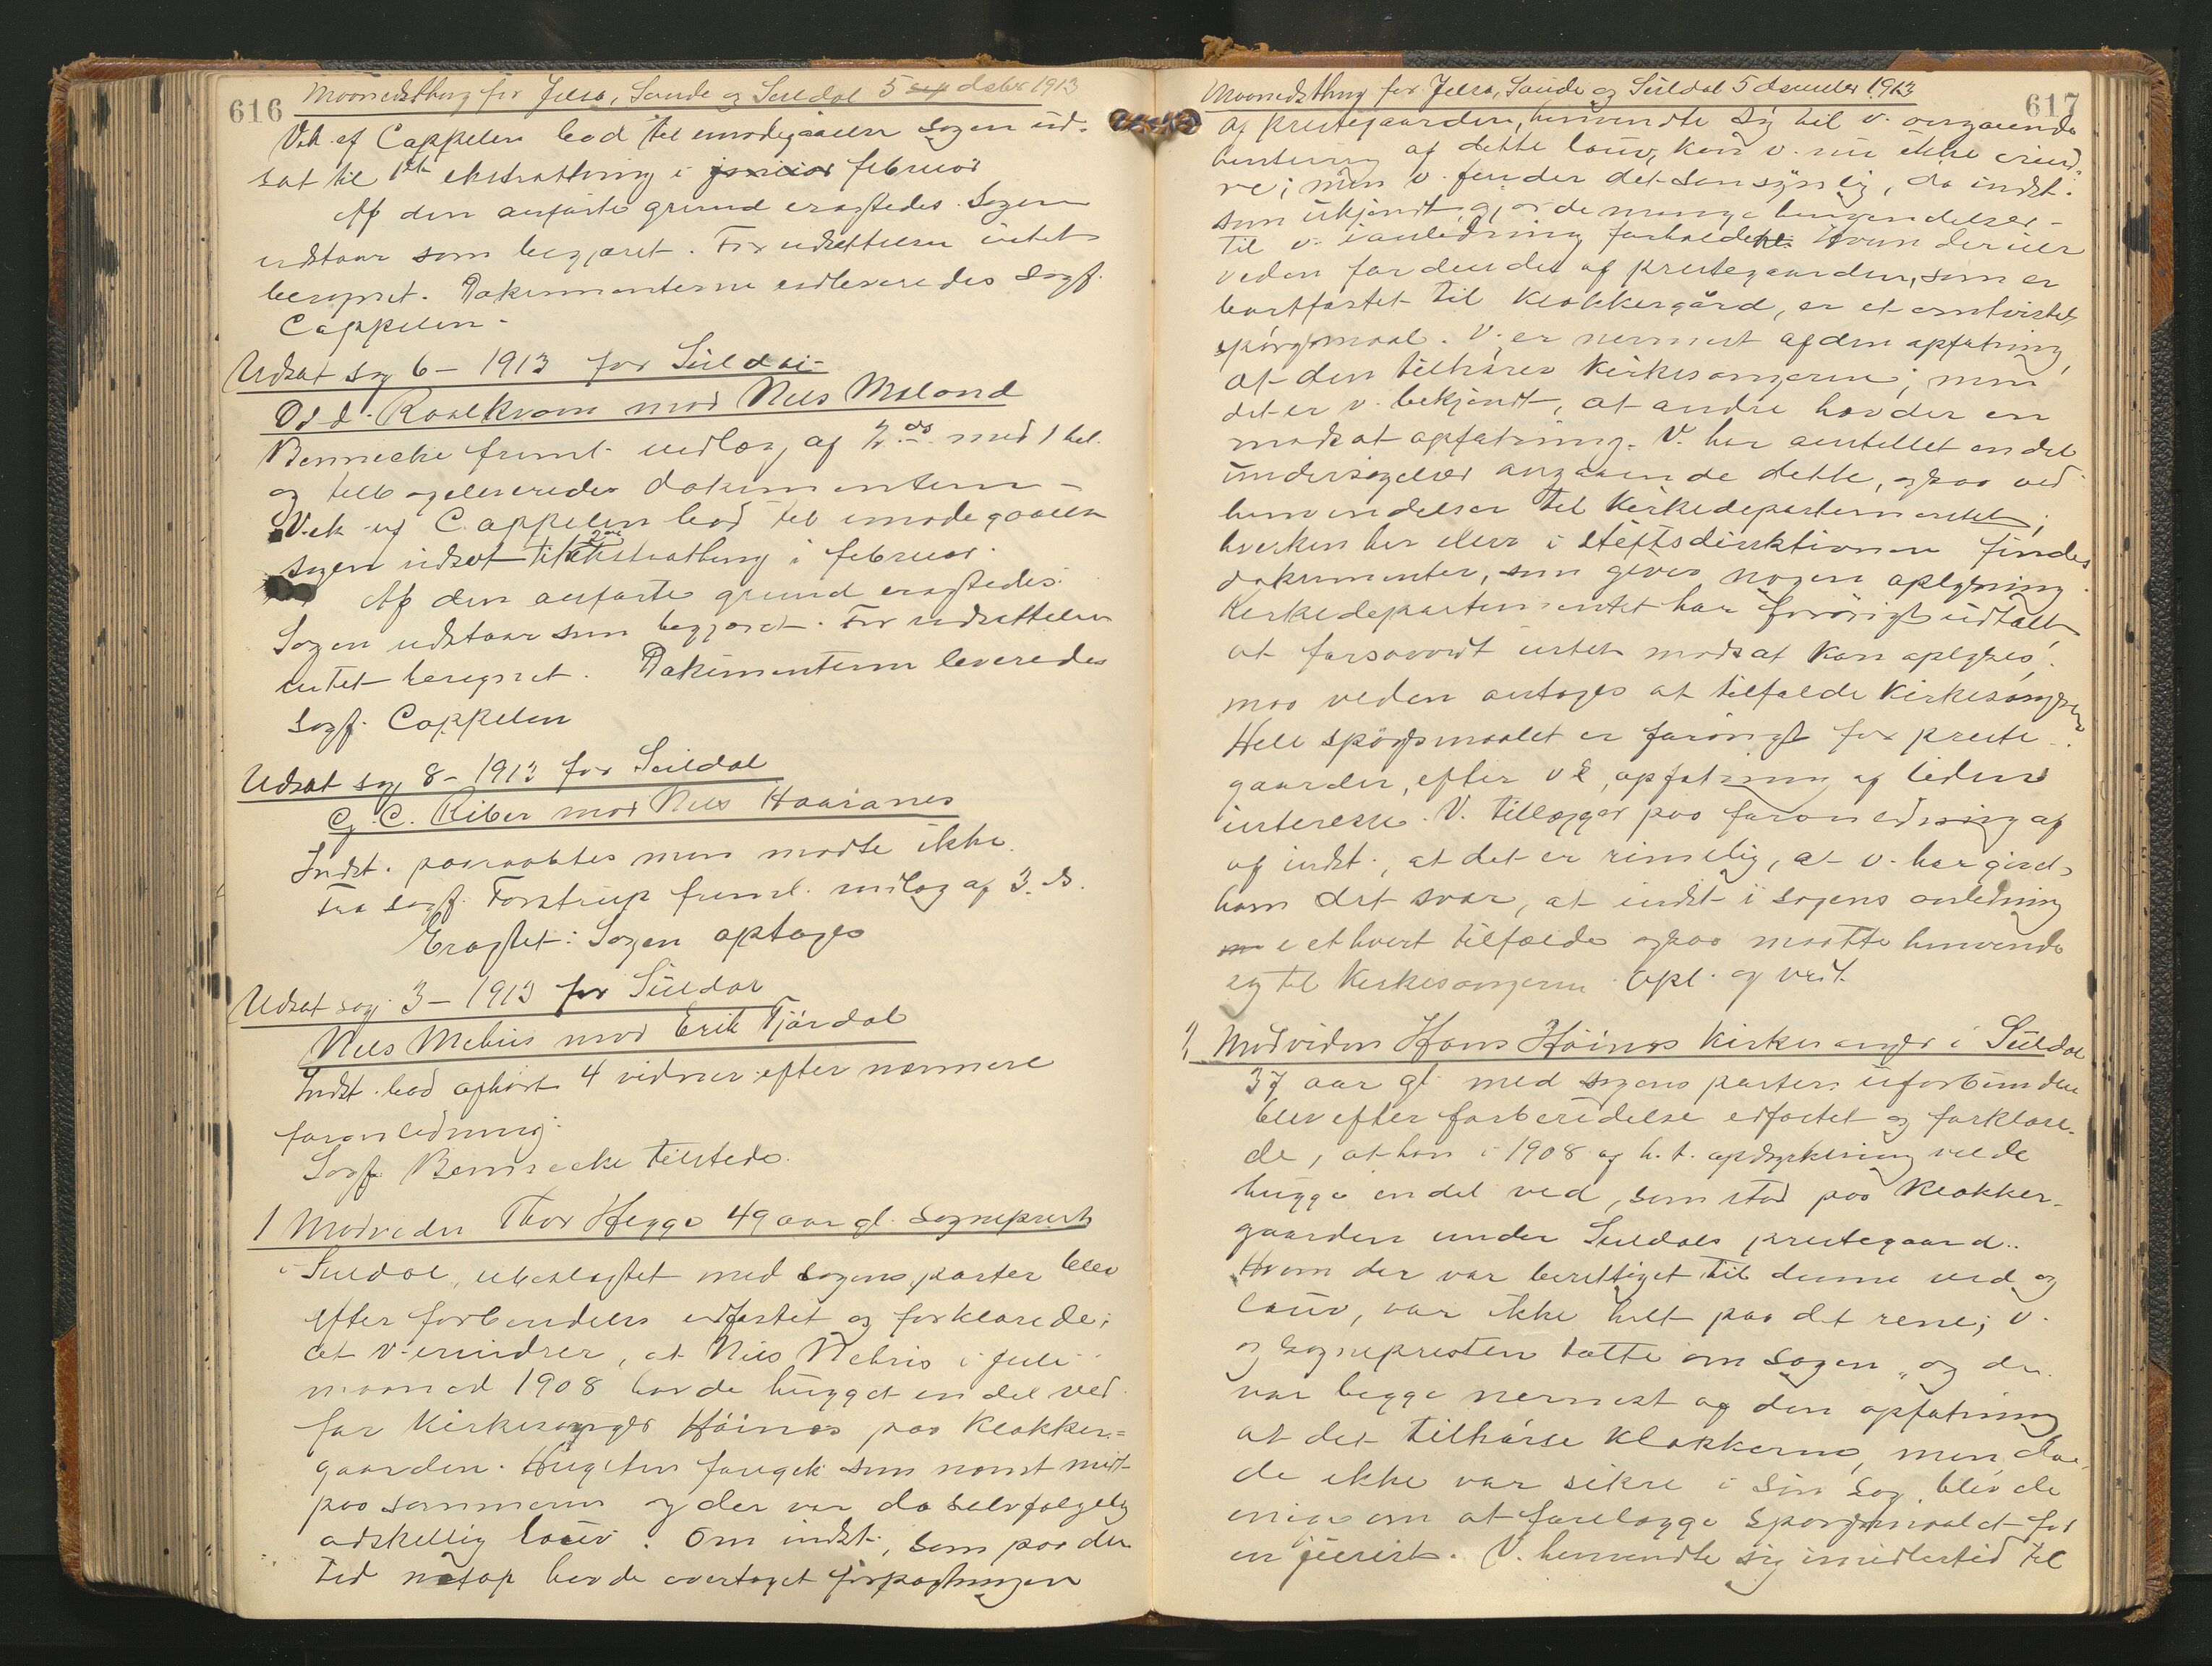 616
Maanedsthing for Jelsa, Sande og Suldal 5 dcbr 1913
Vek. af Cappelen bad til imødegaaelse sagen ud-
sat til 1ste ekstrathing i januar februar
Af den anførte grund eragtedes Sagen
udstaar som begjæret. For udsættelsen intet
beregnet. Dokumenterne udleveredes Sagf.
Cappelen.
Udsat sag 6 - 1913 for Suldal
Odd Roalkvam mod Nils Moland
Bennecke freml. indlæg af 2/12 ds. med 1 bil.
og tilbageleverede dokumenterne
Vek. af Cappelen bad til imødegaaelse
sagen udsat til 2det ekstrathing i februar.
Af den anførte grund eragtedes:
Sagen udstaar som begjæret. For udsættelsen
intet beregnet. Dokumenterne leveredes
Sagf. Cappelen
Udsat sag 8 - 1913 for Suldal
G. C. Riber mod Nils Haaranes
Indst. paaraabtes men mødte ikke.
Fra sagf. Forstrup freml. indlæg af 3. ds.
Eragtet: Sagen optages
Udsat sag 3 - 1913 for Suldal
Nils Mehus mod Erik Fjørdal
Indst. bad afhørt 4 vidner efter nærmere
foranledning.
Sagf. Bennecke tilstede.
1 Modvidne Thor Hegge 49 aar gl. sogneprest
i Suldal, ubeslægtet med sagens parter blev
efter forberedelse edfæstet og forklarede;
at v. erindrer, at Nils Mehus i juli
maaned 1908 havde hugget en del ved
for kirkesanger Høines paa Klokker-
gaarden. Hugsten foregik som nævnt midt
paa sommeren og der var da selvfølgelig
adskillig lauv. Om indst., som paa den
tid netop havde overtaget forpagtningen
617
Maanedsthing for Jelsa, Sande og Suldal 5 december 1913
af prestegaarden, henvendte sig til v. angaaende
hentning af dette lauv, kan v. nu ikke erind-
re; men v. finder det sansynlig, da indst.
som ukjendt gjorde mange henvendelser
til v. i anledning forholdene. Hvem der eier
veden for den del af prestegaarden, som er
bortfæstet til Klokkergård, er et omtvistet
spørgsmaal. V. er nærmest af den opfatning,
at den tilhører Kirkesangeren; men
det er v. bekjendt, at andre havder en
modsat opfatning. V. har anstillet en del
undersøgelser angaaende dette, ogsaa ved
henvendelser til Kirkedepartementet;
hverken her eller i stiftsdirektionen findes
dokumenter, som giver nogen oplysning.
Kirkedepartementet har forøvrigt udtalt,
at forsaavidt intet modsat kan oplyses,
maa veden antages at tilfalde Kirkesangeren
Hele spørgsmaalet er forøvrigt for preste-
gaarden, efter v's opfatning af liden
interesse. V. tillægger paa foranledning af
af indst., at det er rimelig, at v. har givet
ham det svar, at indst. i sagens anledning
i ethvert tilfælde ogsaa maatte henvende
sig til Kirkesangeren. Opl. og vedt.
2, Modvidne Hans Høines Kirkesanger i Suldal
37 aar gl. med sagens parter uforbunden
blev efter forberedelse edfæstet og forklare-
de, at han i 1908 af h. t. opdyrkning vilde
hugge en del ved, som stod paa Klokker-
gaarden under Suldals prestegaard.
Hvem der var berettiget til denne ved og
lauv, var ikke helt paa det rene; v.
og sognepresten talte om sagen, og de
var begge nærmest af den opfatning
at det tilhørte klokkerne, men da
de ikke var sikre i sin sag, blev de
enige om at forelægge spørgsmaalet for
en jurist. V. henvendte sig imidlertid til